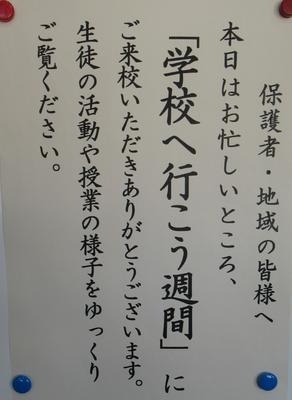 保護者・地域の皆様へ
本日はお忙しいところ、
「学校へ行こう週間」に
ご来校いただきありがとうございます。
生徒の活動や授業の様子をゆっくり
ご覧ください。